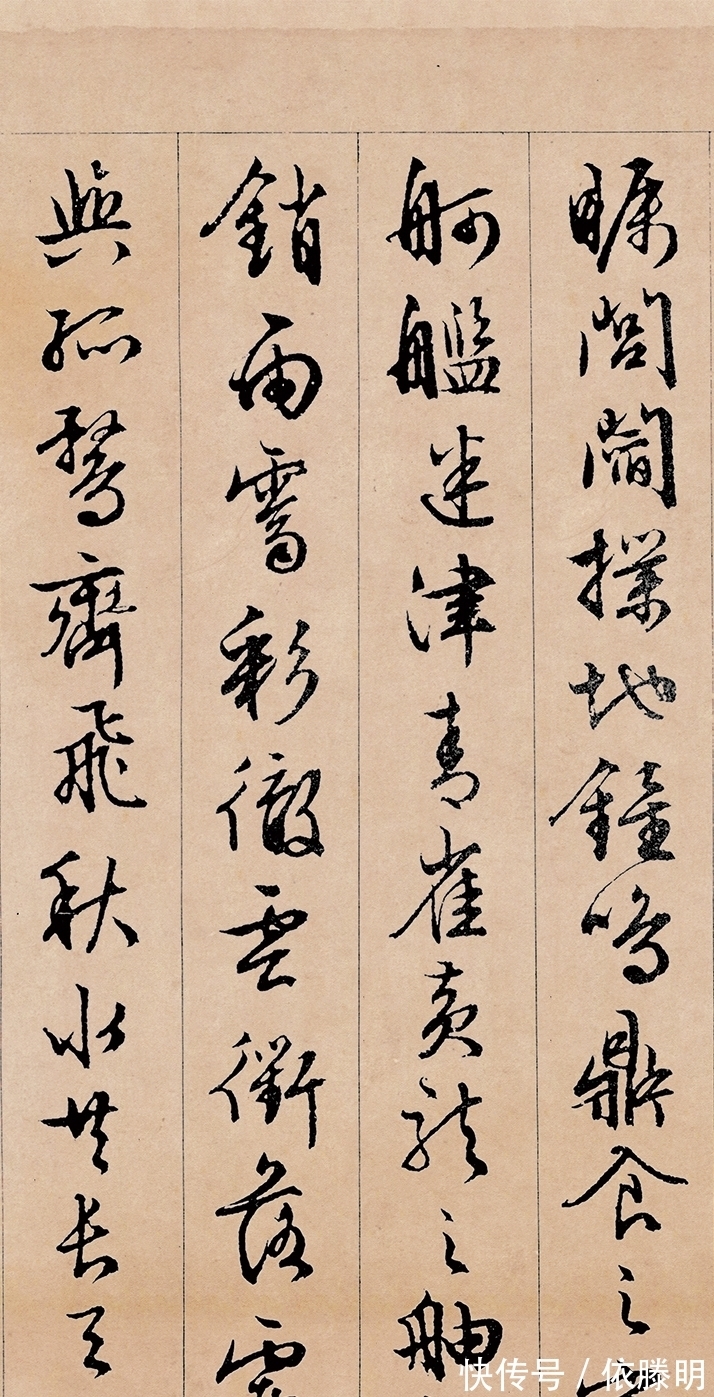 矚閭閻撲地鐘鳴鼎食之
舸艦迷津青雀黃龍之舳
銷雨霽彩徹雲衢落霞
與孤鶩齊飛秋水共長天
快传号 / 依滕明